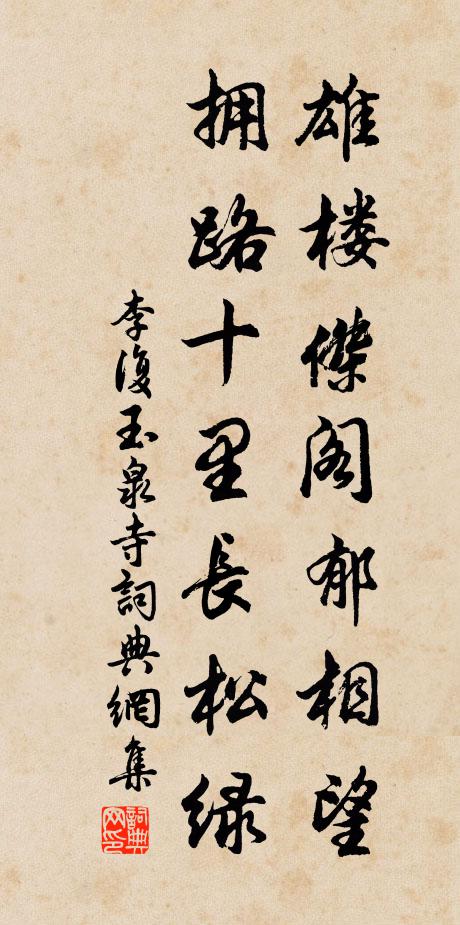 雄楼傑阁郁相望
拥路十里長松绿
李復玉泉寺詞典網集
詞典網印